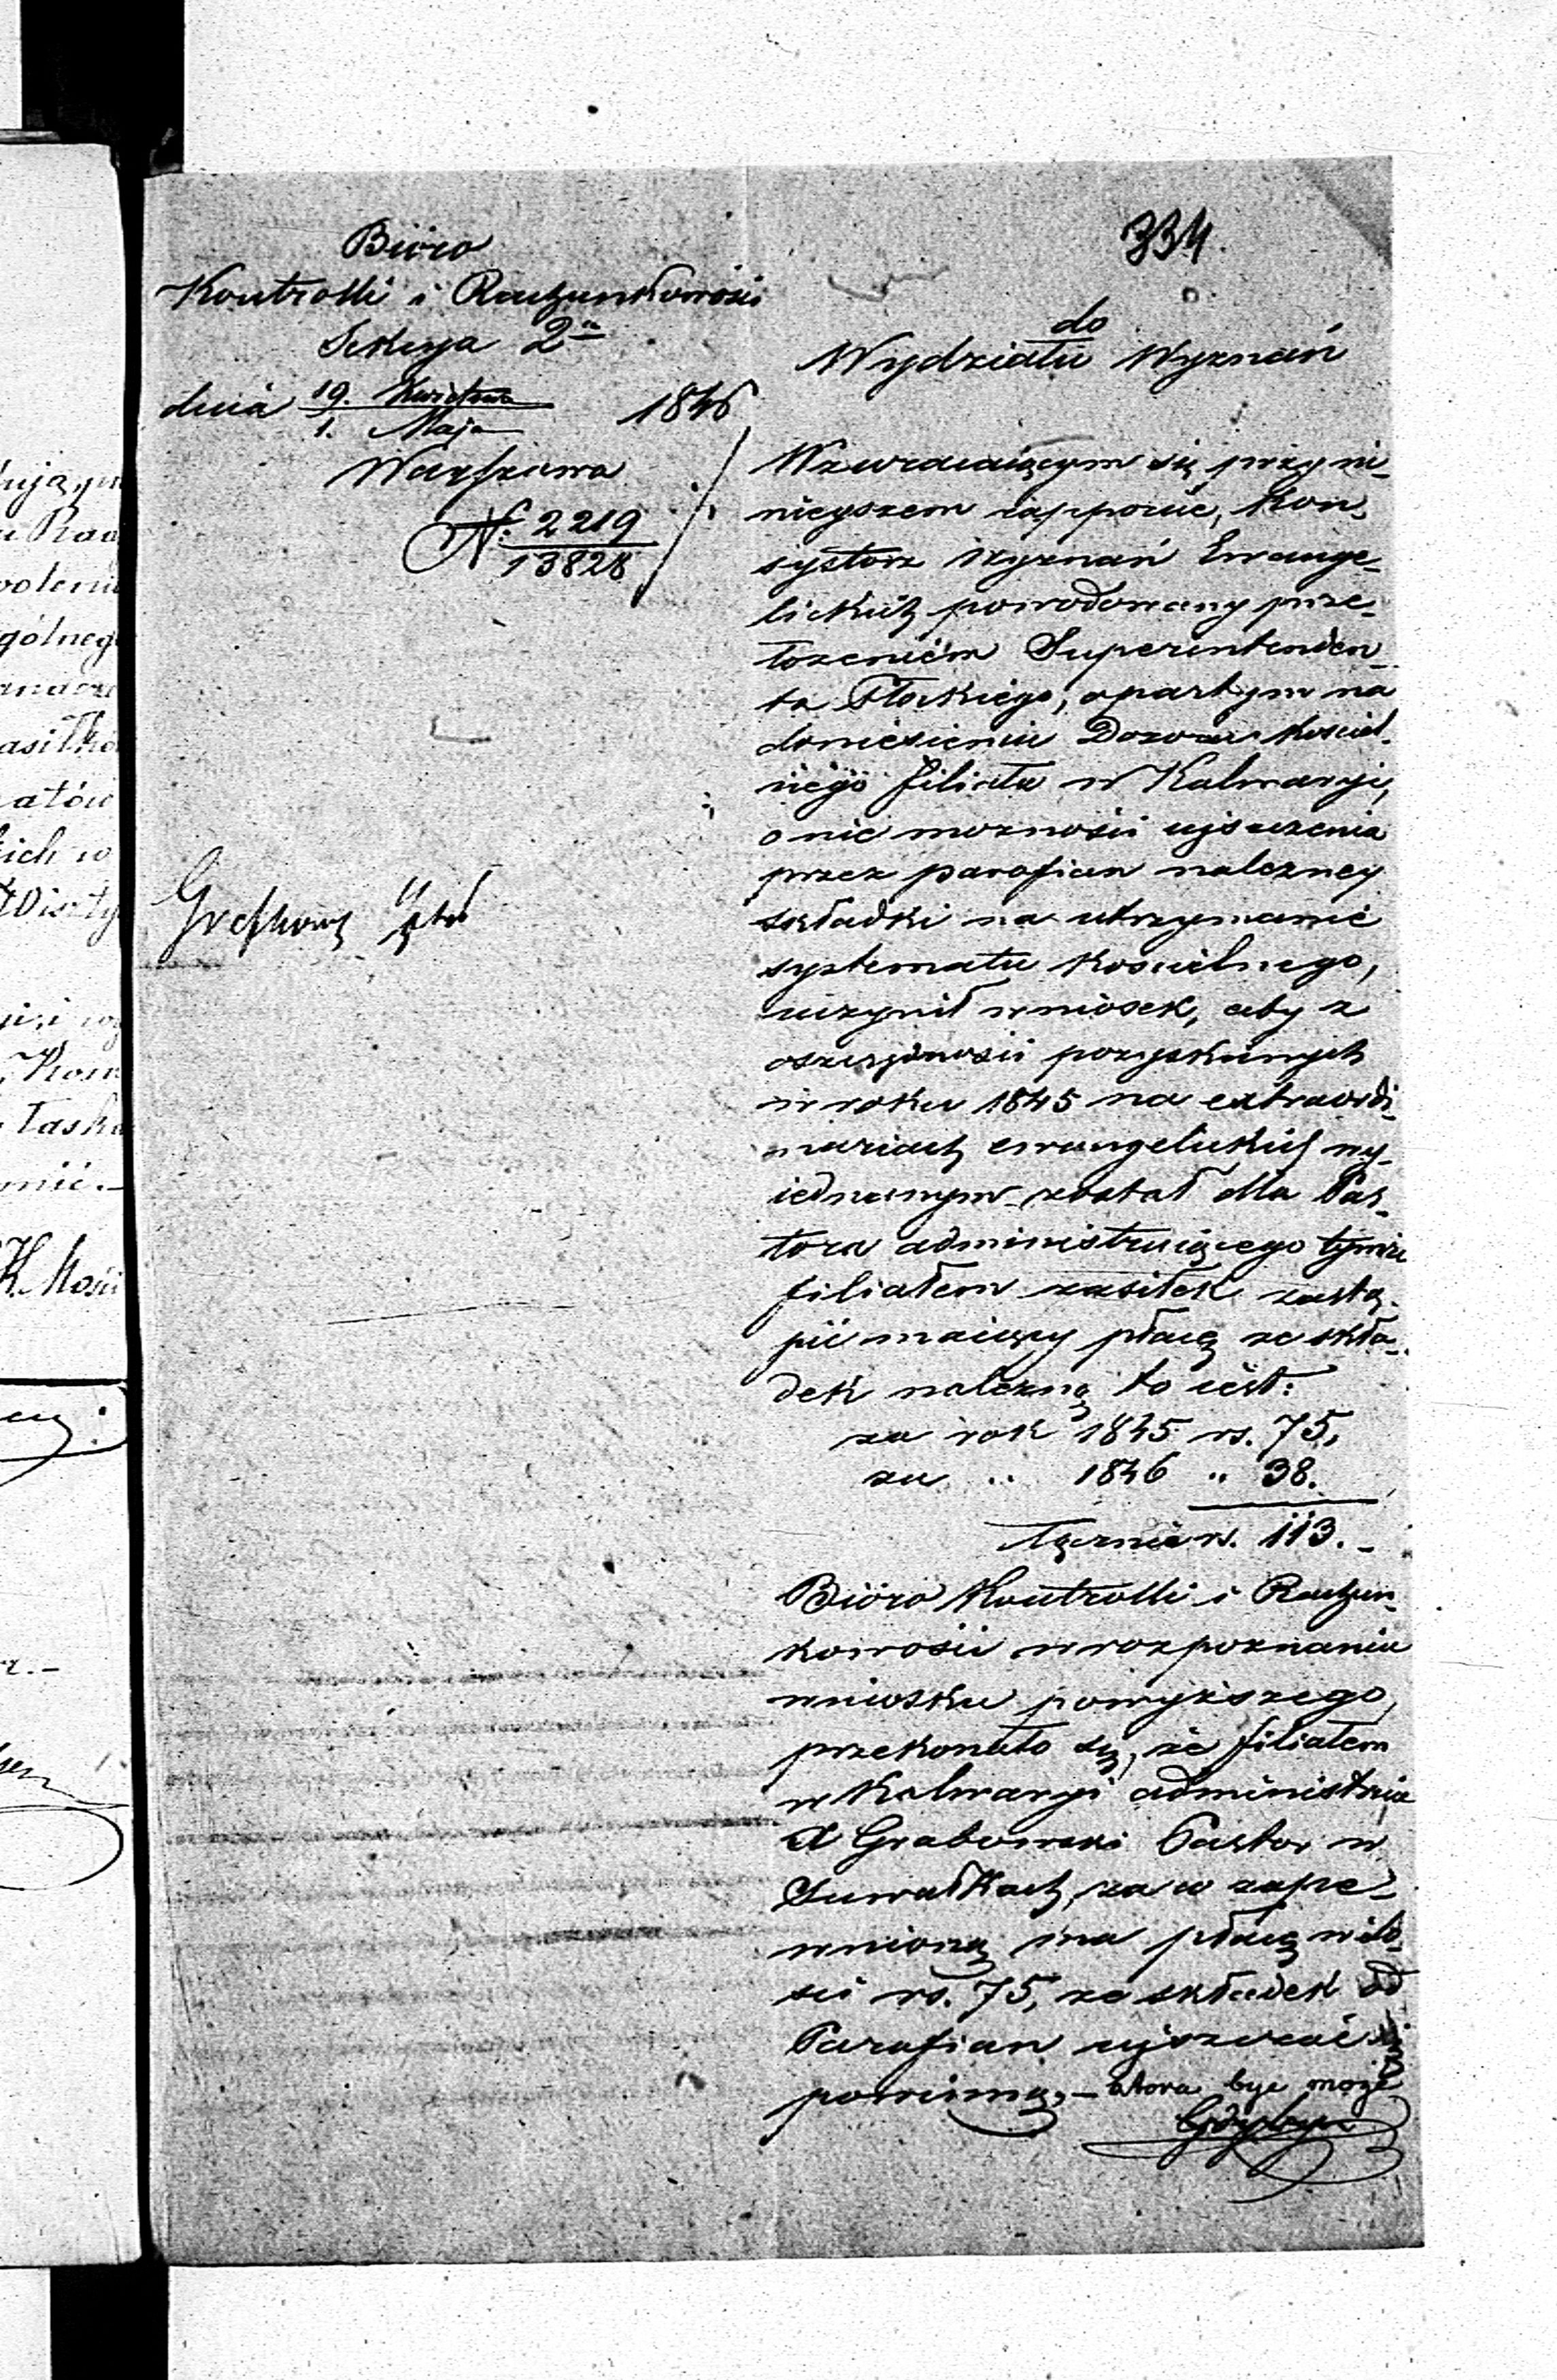 334.
Biuro
Kontrolli i Rachunkowości
Sekcya 2ª
dnia 19. Kwietnia / 1. Maja 1846
Warszawa
N: 2219 / 13828
do
Wydziału Wyznań
W zwracaiącym się przy ni-
nieyszem rapporcie, Kon-
systorz Wyznań Ewange-
lickich powodowany prze-
łożeniem Superintenden-
ta Płockiego, opartym na
doniesieniu Dozoru Kościel-
nego filiału w Kalwaryi,
o nie możności uiszczenia
przez parafian należney
składki na utrzymanie
systematu kościelnego,
uczynił wniosek, aby z
oszczędności pozyskanych
w roku 1845 na extraordi-
nariach ewangelickich wy-
iednanym został dla Pas-
tora administruiącego tymże
filiałem zasiłek zastą-
pić maiący płacę ze skła-
dek należną to iest:
za rok 1845 rs. 75,
za „ 1846 „ 38.
Łącznie rs. 113.-
Biuro Kontrolli i Rachun-
kowości w rozpoznaniu
wniosku powyższego,
przekonało się, że filiałem
w Kalwaryi administruie
X Grabowski Pastor w
Suwałkach, za co zape-
wnioną ma płacę w ilo-
ści rs. 75, ze składek od
Parafian uiszczać się
powinną,- która być może